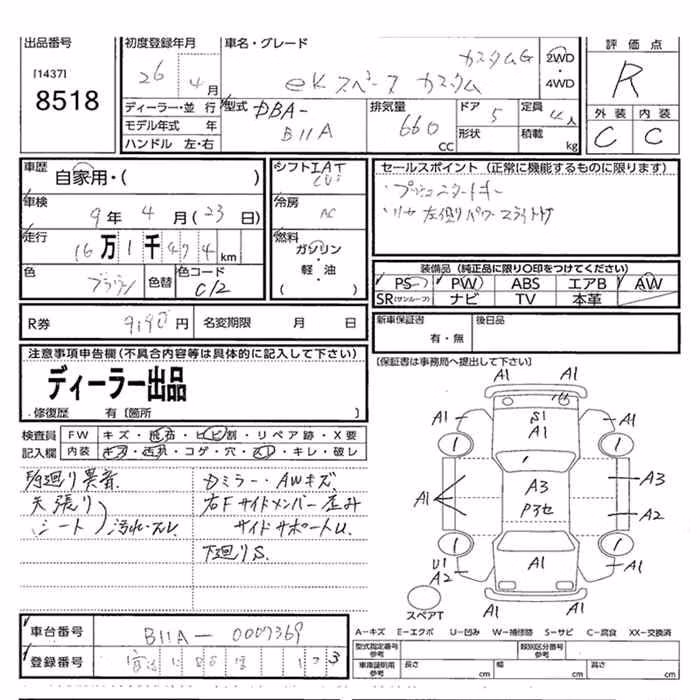 出品番号
[1437]
8518
初度登録年月
26 4月
車名・グレード
カスタムG
eKスペース カスタム
2WD
・
4WD
評価点
R
外装 内装
C C
ディーラー・並行
モデル年式 年
ハンドル 左・右
型式 DBA-
B11A
排気量
660
CC
ドア 5
形状
定員 4人
積載 kg
車歴
自家用・( )
車検
9年 4月(23日)
走行
16万1千474km
色 ブラウン 色替 色コード C12
シフト IAT
冷房 AC
燃料
ガソリン
・
軽・油
( )
セールスポイント(正常に機能するものに限ります)
・プッシュスタートキー
・リヤ左側パワースライドドア
装備品(純正品に限り○印をつけてください)
PS PW ABS エアB AW
SR(サンルーフ) ナビ TV 本革
R券 9190円 名変期限 月 日
新車保証書
有・無
後日品
[保証書は事務局へ提出して下さい]
注意事項申告欄(不具合内容等は具体的に記入して下さい)
ディーラー出品
修復歴 有[箇所 ]
検査員 FW キズ・飛石・ヒビ割・リペア跡・X要
記入欄 内装 キズ・汚れ・コゲ・穴・スレ・キレ・破レ
足廻り異音
天張り
シート 汚れ・スレ
Dミラー・AWキズ
右Fサイドメンバー歪み
サイドサポートU
下廻りS
A1 A1
A1 S1 A1
A1
1 1
A1 A3 A3
P3セ A2
1 1
U1 A1 A1
A2
A1 A1
スペアT
車台番号 B11A-0007369
登録番号
A-キズ E-エクボ U-凹み W-補修跡 S-サビ C-腐食 XX-交換済
型式指定番号
参考
類別区分番号
参考
車庫証明用
参考
長さ cm 幅 cm 高さ cm